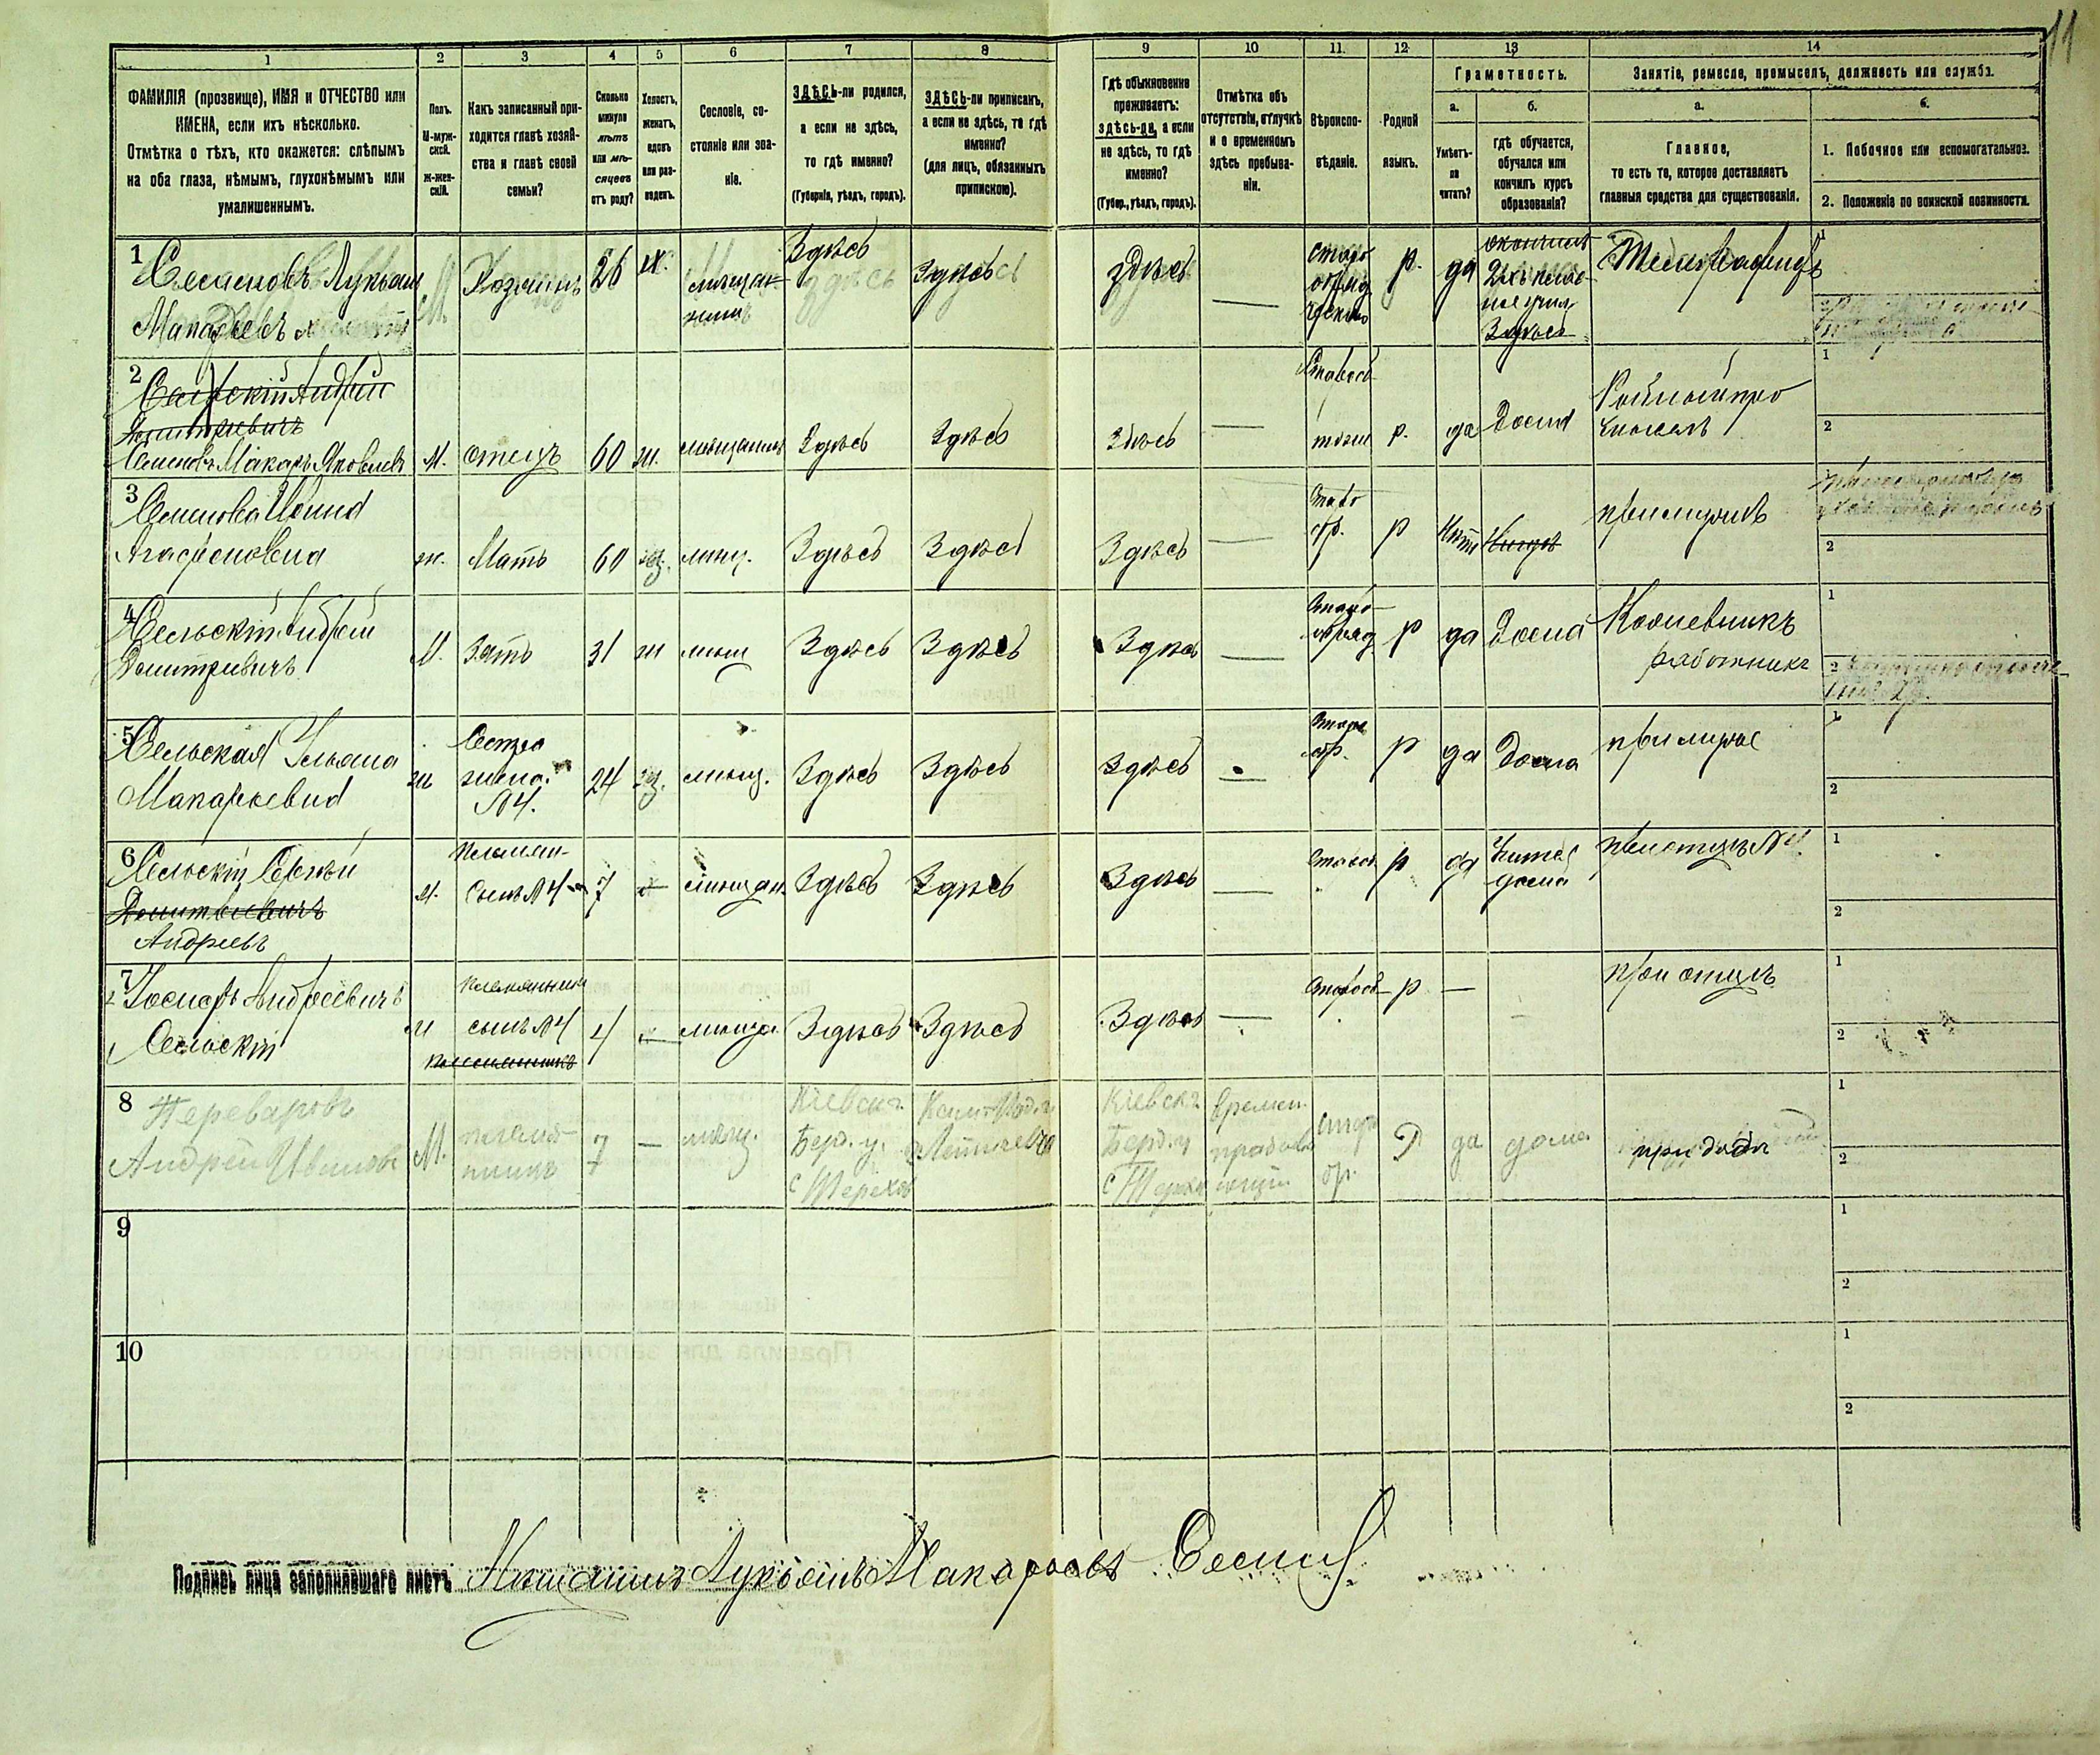 11
1
2
3
4
5
6
7
8
9
10
11.
12
13
14
ФАМИЛІЯ (прозвище), ИМЯ и ОТЧЕСТВО или
ИМЕНА, если ихъ нѣсколько.
Отмѣтка о тѣхъ, кто окажется: слѣпымъ
на оба глаза, нѣмымъ, глухонѣмымъ или
умалишеннымъ.
Полъ.
М-муж-
ской.
ж-жен-
скій.
Какъ записанный при-
ходится главѣ хозяй-
ства и главѣ своей
семьи?
Сколько
минуло
лѣтъ
или мѣ-
сяцевъ
отъ роду?
Холостъ,
женатъ,
вдовъ
или раз-
веденъ.
Сословіе, со-
стояніе или зва-
ніе.
ЗДѢСЬ-ли родился,
а если не здѣсь,
то гдѣ именно?
(Губернія, уѣздъ, городъ).
ЗДѢСЬ-ли приписанъ,
а если не здѣсь, то гдѣ
именно?
(для лицъ, обязанныхъ
припискою).
Гдѣ обыкновенно
проживаетъ:
здѣсь-ли, а если
не здѣсь, то гдѣ
именно?
(Губер., уѣздъ, городъ).
Отмѣтка объ
отсутствіи, отлучкѣ
и о временномъ
здѣсь пребыва-
ніи.
Вѣроиспо-
вѣданіе.
Родной
языкъ.
Грамотность.
а.
б.
Умѣетъ-
ли
читать?
гдѣ обучается,
обучался или
кончилъ курсъ
образованія?
Занятіе, ремесло, промыселъ, должность или служба.
а.
б.
Главное,
то есть то, которое доставляетъ
главныя средства для существованія.
1. Побочное или вспомогательное.
2. Положеніе по воинской повинности.
1
Семеновъ Лукьян
Макарьевъ
М.
Хозяинъ
26
ж.
мѣщан-
нинъ
Здѣсь
Здѣсь
здѣсь
—
старо
обряд
р.
да
окончилъ
Здѣсь
1
2
Сельскій Андрей
Дмитриевичъ
Семеновъ Макаръ Яковлевъ
М.
отецъ
60
ж.
мѣщанинъ
Здѣсь
Здѣсь
Здѣсь
—
р.
да
Дома
1
2
3
Семенова
Агафоновна
ж.
Мать
60
мѣщ.
Здѣсь
Здѣсь
Здѣсь
—
старо
обр.
р
Нѣтъ
при мужѣ
2
4
Сельскій Андрей
Дмитриевичъ
М.
Зять
31
ж
мѣщ
Здѣсь
Здѣсь
Здѣсь
—
старо-
обряд
р
да
Дома
работникъ
1
2
5
Сельская Ульяна
Макарьевна
ж
Сестра
жена
№4.
24
мѣщ.
Здѣсь
Здѣсь
Здѣсь
—
старо
обр.
р
да
дома
при мужѣ
1
2
6
Сельскій Сергѣй
Дмитріевичъ
Андреевъ
М.
Племян-
Сынъ №4
7
—
мѣщан.
Здѣсь
Здѣсь
Здѣсь
—
р
да
дома
при отцѣ №4
1
2
7
Андреевичъ
Сельскій
М
племянникъ
сынъ №4
племянникъ
4
—
мѣщан.
Здѣсь
Здѣсь
Здѣсь
—
старооб
р
—
при отцѣ
1
2
8
Переваровъ
Андрей Ивановъ
М.
племян-
никъ
7
—
мѣщ.
Кіевск.
Берд. у.
с Терехов
Кіевск.
Берд. у
с Терех
времен.
старо
обр.
Р
да
дома
при дядѣ
1
2
9
1
2
10
1
2
Подпись лица заполнявшаго листъ Мѣщанинъ Лукьянъ Макарьевъ